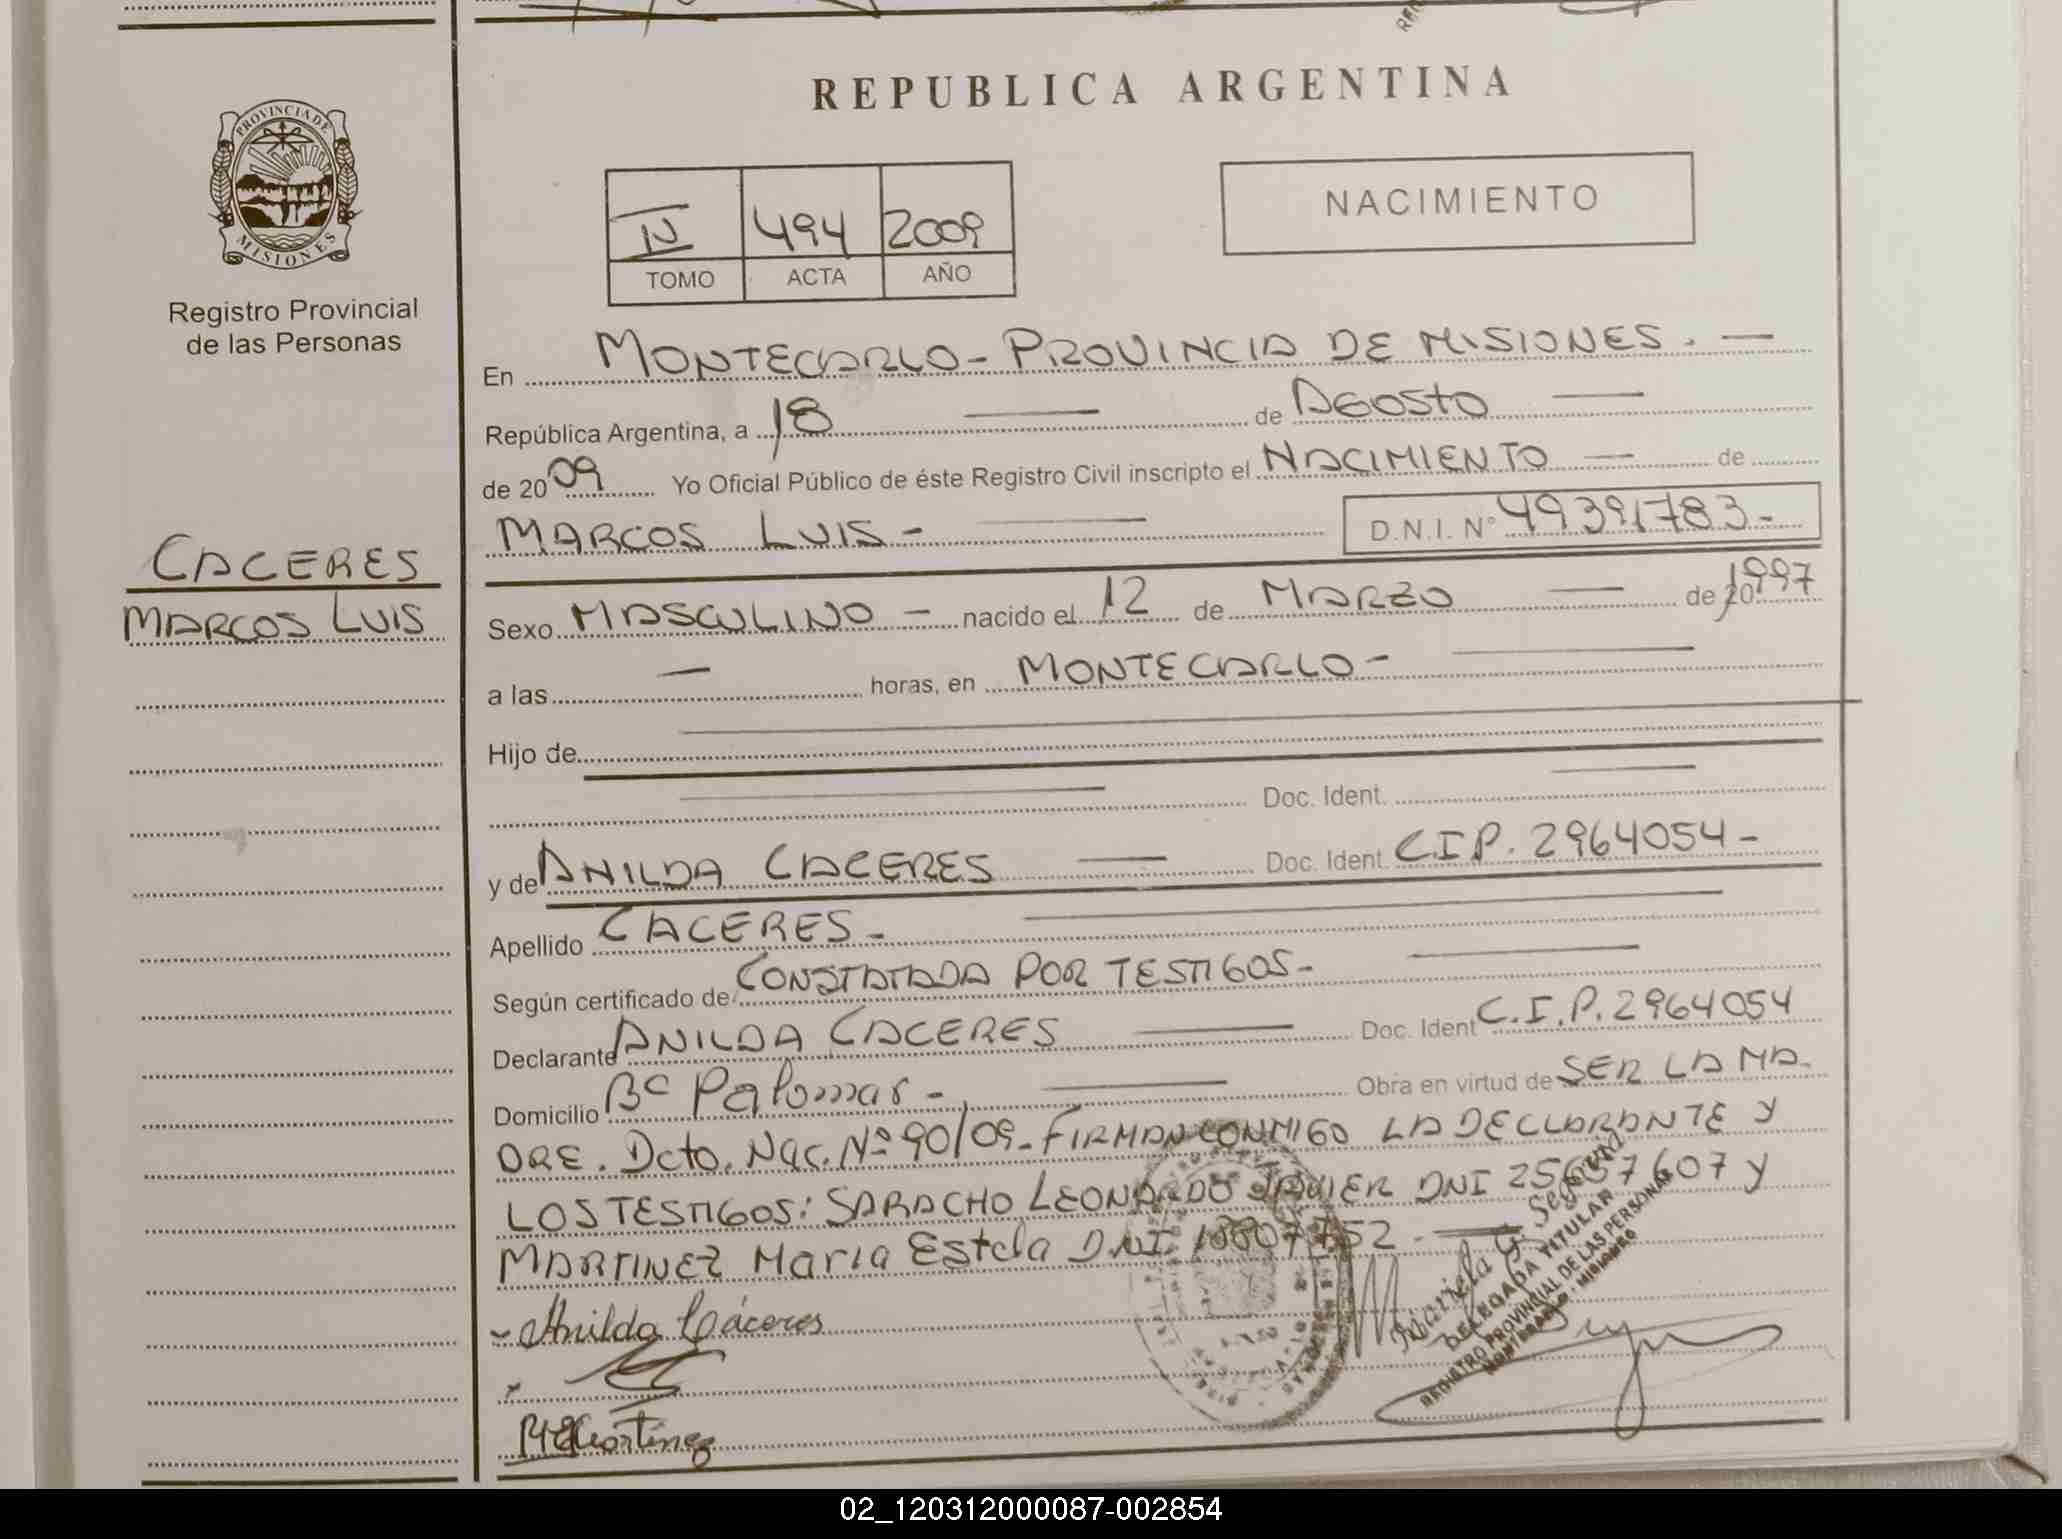 REPUBLICA ARGENTINA
PROVINCIA DE
MISIONES
Registro Provincial
de las Personas
IV 494 2009
TOMO ACTA AÑO
NACIMIENTO
En MONTECARLO - PROVINCIA DE MISIONES. —
República Argentina, a 18 — de AGOSTO —
de 2009 Yo Oficial Público de éste Registro Civil inscripto el NACIMIENTO — de
MARCOS LUIS - — D.N.I. N° 49391783-
CACERES
MARCOS LUIS
Sexo MASCULINO - nacido el 12 de MARZO — de 1997
a las — horas, en MONTECARLO - —
Hijo de —
— Doc. Ident. —
y de ANILDA CACERES — Doc. Ident. C.I.P. 2964054-
Apellido CACERES - —
Según certificado de CONSTATADA POR TESTIGOS - —
Declarante ANILDA CACERES — Doc. Ident C.I.P. 2964054
Domicilio Bº Palomar - — Obra en virtud de SER LA MA-
DRE. Dcto. Nac. Nº 90/09- FIRMAN CONMIGO LA DECLARANTE Y
LOS TESTIGOS: SARACHO LEONARDO JAVIER DNI 25657607 Y
MARTINEZ Maria Estela DNI. —
Anilda Cáceres
Mariela G. Segovia
DELEGADA TITULAR
REGISTRO PROVINCIAL DE LAS PERSONAS
MONTECARLO - MISIONES
02_120312000087-002854